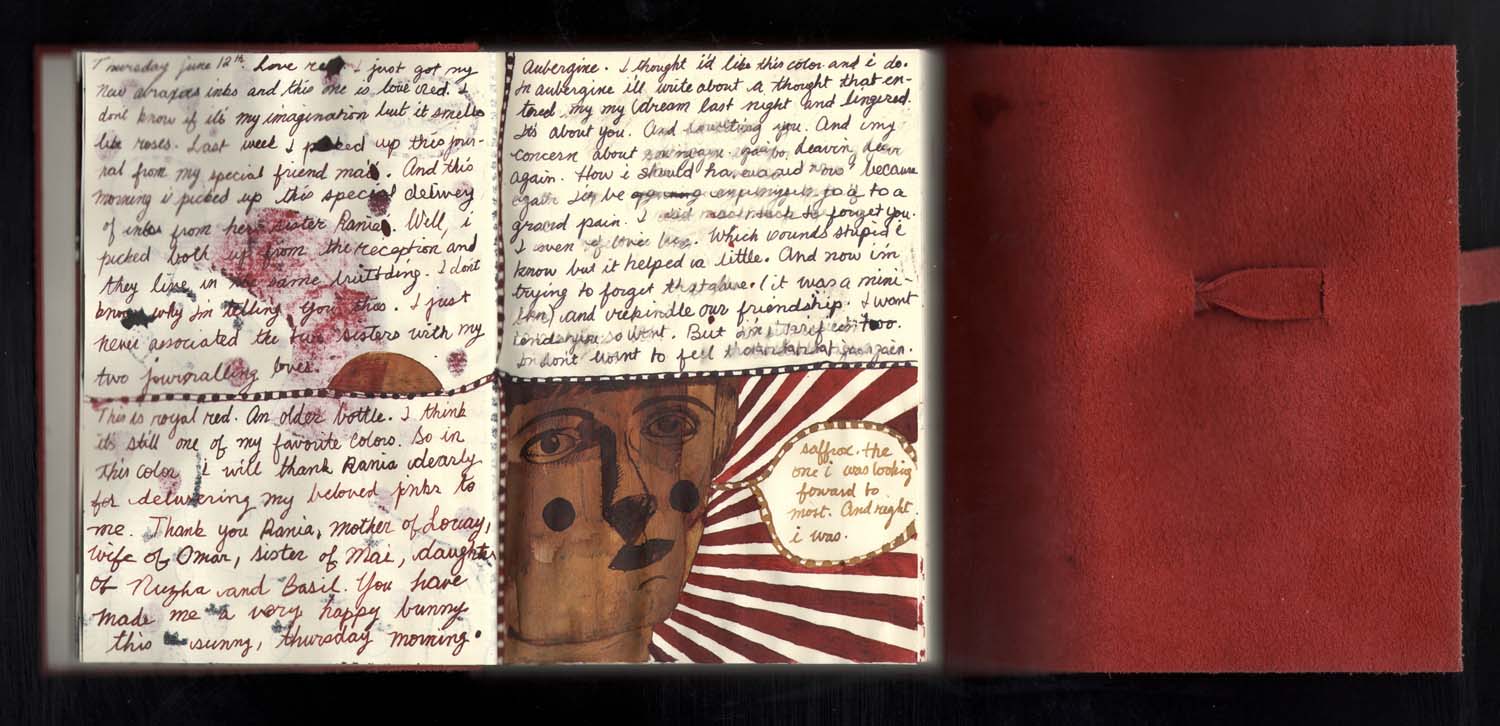 Thursday june 12th. Love red. I just got my
new abraxas inks and this one is love red. I
don't know if it's my imagination but it smells
like roses. Last week I picked up this jour-
nal from my special friend mai. And this
morning i picked up this special delivery
of inks from her sister Rania. Will, i
picked both up from the reception and
they live in the same buillding. I don't
know why i'm telling you this. I just
never associated the two sisters with my
two journalling loves.
This is royal red. An older bottle. I think
it's still one of my favorite colors. So in
this color I will thank Rania dearly
for delivering my beloved inks to
me. Thank you Rania, mother of Louay,
wife of Omar, sister of Mai, daughter
of Nuzha and Basil. You have
made me a very happy bunny
this sunny, thursday morning.
Aubergine. I thought i'd like this color and i do.
In aubergine i'll write about a thought that en-
tered my my dream last night and lingered.
It's about you. And you. And my
concern about
again. How i should now because
again be to a
grand pain. I to forget you.
I even Which sounds stupid i
know but it helped a little. And now i'm
trying to forget that (it was a mini-
and rekindle our friendship. I want
so want. But too.
don't want to feel again.
saffron. the
one i was looking
foward to
most. And right
i was.